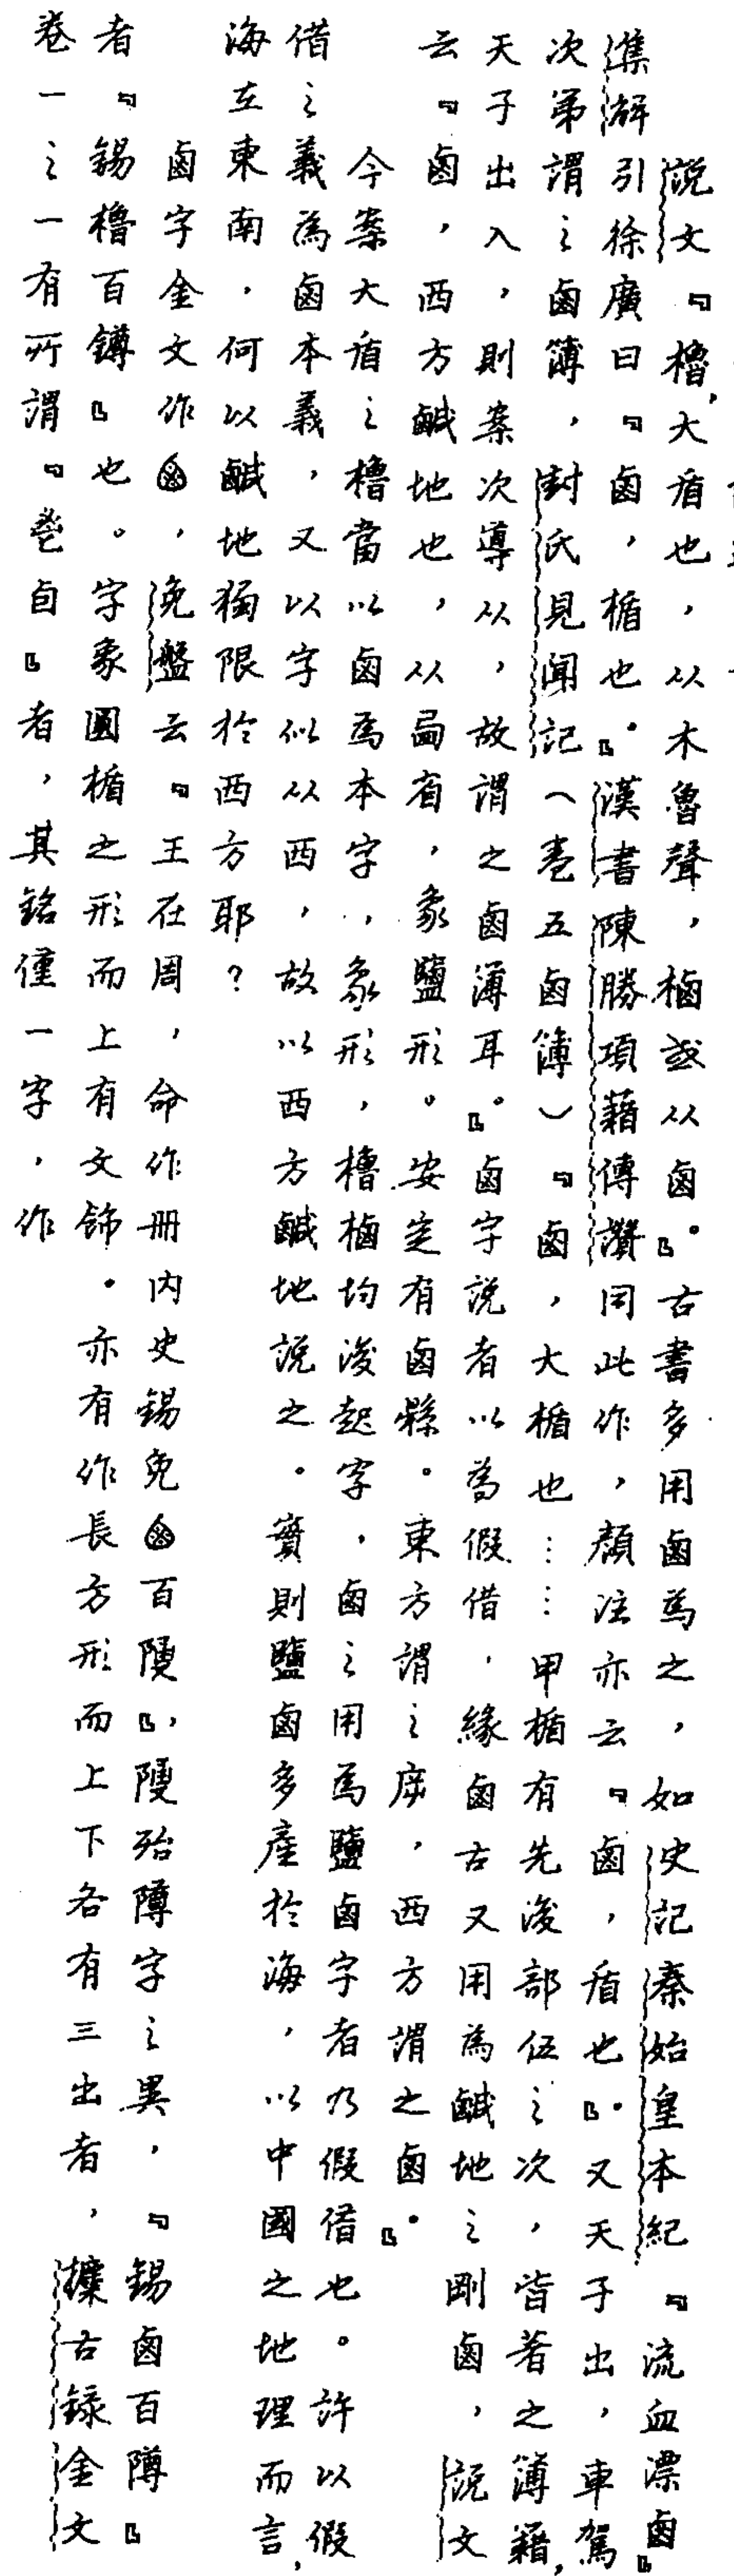 說文『櫓，大盾也，从木魯聲，樐或从鹵。』古書多用鹵為之，如史記秦始皇本紀『流血漂鹵』
集解引徐廣曰『鹵，楯也。』漢書陳勝項藉傳讚同此作，顏注亦云『鹵，盾也。』又天子出，車駕
次第謂之鹵簿，封氏見聞記（卷五鹵簿）『鹵，大楯也……甲楯有先後部伍之次，皆著之簿籍，
天子出入，則案次導从，故謂之鹵薄耳。』鹵字說者以為假借，緣鹵古又用為鹹地之剛鹵，說文
云『鹵，西方鹹地也，从㢴省，象鹽形。安定有鹵縣。東方謂之㡿，西方謂之鹵。』
今案大盾之櫓當以鹵為本字，象形，櫓樐均後起字，鹵之用為鹽鹵字者乃假借也。許以假
借之義為鹵本義，又以字似从西，故以西方鹹地說之。實則鹽鹵多產於海，以中國之地理而言，
海在東南，何以鹹地獨限於西方耶？
鹵字金文作，免盤云『王在周，命作冊內史錫免百隩』，隩殆𨻵字之異，『錫鹵百𨻵』
者『錫櫓百鐏』也。字象圓楯之形而上有文飾。亦有作長方形而上下各有三出者，攈古錄金文
卷一之一有所謂『卣』者，其銘僅一字，作